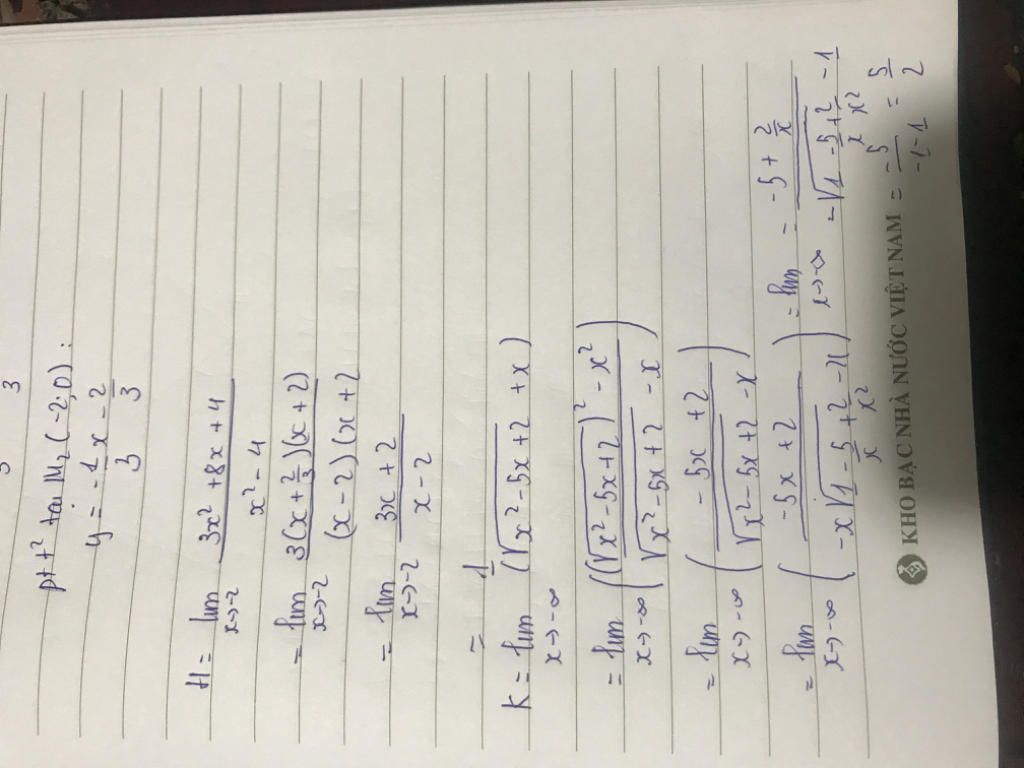 3 3
pt t² tại M₂(-2,0):
y = -1/3 x - 2/3
H = lim x→-2 (3x² + 8x + 4)/(x² - 4)
= lim x→-2 3(x + 2/3)(x + 2)/(x - 2)(x + 2
= lim x→-2 (3x + 2)/(x - 2)
= 1
K = lim x→-∞ (√(x² - 5x + 2) + x)
= lim x→-∞ (((√(x² - 5x + 2))² - x²)/(√(x² - 5x + 2) - x))
= lim x→-∞ ((-5x + 2)/(√(x² - 5x + 2) - x))
= lim x→-∞ ((-5x + 2)/(-x√(1 - 5/x + 2/x²) - x)) = lim x→-∞ (-5 + 2/x)/(-√(1 - 5/x + 2/x²) - 1)
= -5/(-1-1) = 5/2
KHO BẠC NHÀ NƯỚC VIỆT NAM